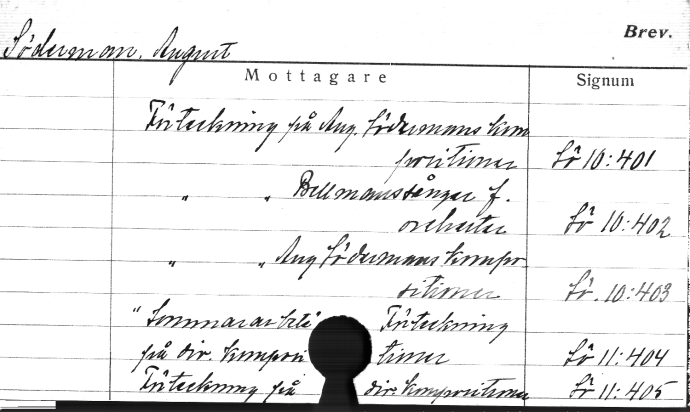 Brev.
Söderman, August
Mottagare Signum
Förteckning på Aug. Södermans kom
positioner Sö 10:401
" " Bellmanssånger f.
orkester Sö 10:402
" " Aug Södermans kompo-
sitioner Sö. 10:403
"Sommararbete" Förteckning
på div. komposi tioner Sö 11:404
Förteckning på div. kompositioner Sö 11:405